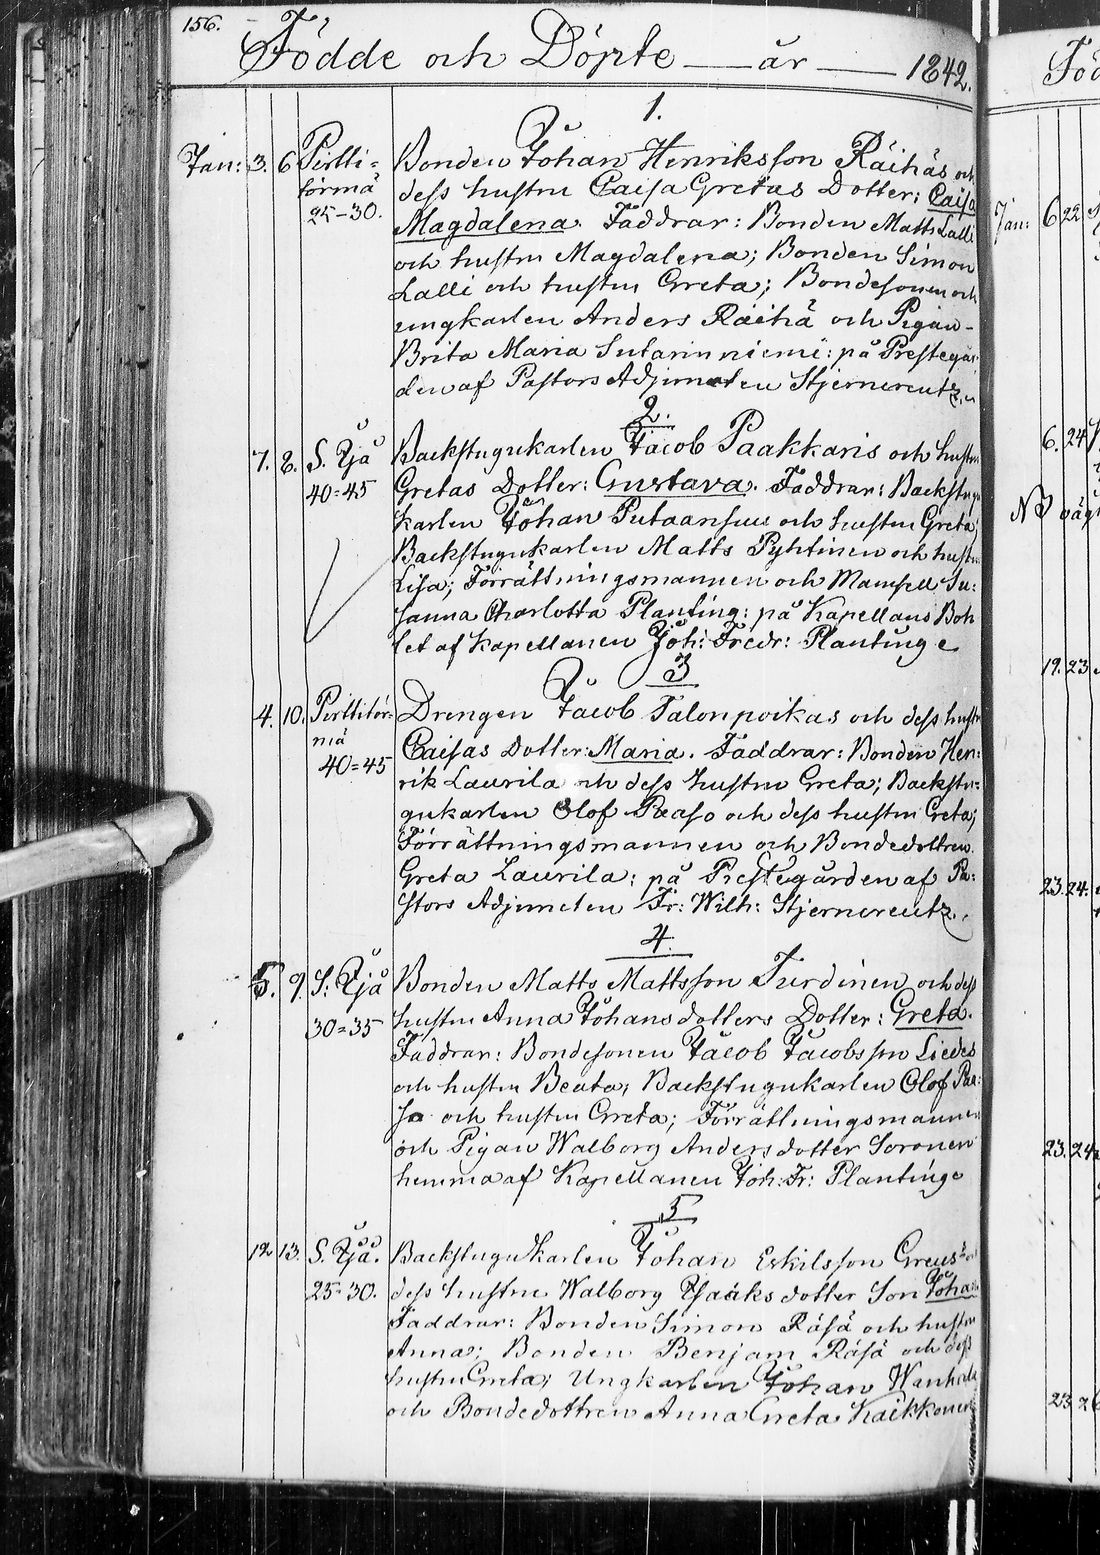 156.
Födde och Döpte — år — 1842.
1.
Jan: 3. 6 Pirtti= Bonden Johan Henriksson Räihäs och
törmä dess hustru Caisa Gretas Dotter: Caisa
25-30. Magdalena. Faddrar: Bonden Matts Lalli
och hustru Magdalena; Bonden Simon
Lalli och hustru Greta; Bondesonen och
ungkarlen Anders Räihä och Pigan
Brita Maria Sutarinniemi: på Prestegår-
den af Pastors Adjuncten Stjerncreutz.
2.
7. 8. S. Yjå Backstugukarlen Jacob Paakkaris och hustru
40=45 Gretas Dotter: Gustava. Faddrar: Backstugu
karlen Johan Putaansuu och hustru Greta,
Backstugukarlen Matts Pyhtinen och hustru
Lisa; Förrättningsmannen och Mamsell Su:
sanna Charlotta Planting: på Kapellans Bol
let af Kapellanen Joh: Fredr: Planting
3
4. 10. Pirttitör= Drengen Jacob Talonpoikas och dess hustru
mä Caisas Dotter: Maria. Faddrar: Bonden Hen:
40=45 rik Laurila och dess hustru Greta; Backstu=
gukarlen Olof Paaso och dess hustru Greta;
Förrättningsmannen och Bondedottren
Greta Laurila: på Prestegården af Pa:
stors Adjuncten Fr: Wilh: Stjerncreutz.
4.
5. 9. S: Yjå Bonden Matts Mattsson Turdinen och dess
30=35 hustru Anna Johansdotters Dotter: Greta.
Faddrar: Bondesonen Jacob Jacobsson Liedes
och hustru Beata; Backstugukarlen Olof Paa:
so och hustru Greta; Förrättningsmannen
och Pigan Walborg Andersdotter Soronen
hemma af Kapellanen Joh: Fr: Planting
5
12 13. S. Yjå. Backstugukarlen Johan Eskilsson Greus och
25=30. dess hustru Walborg Isaaksdotter Son Johan
Faddrar: Bonden Simon Räsä och hustru
Anna; Bonden Benjam Räsä och dess
hustru Greta; Ungkarlen Johan Wanhala
och Bondedottren Anna Greta Kaikkonen
Föd
Jan: 6 22
6. 24
NB vägr
19. 23
23. 24.
23. 24
23 26